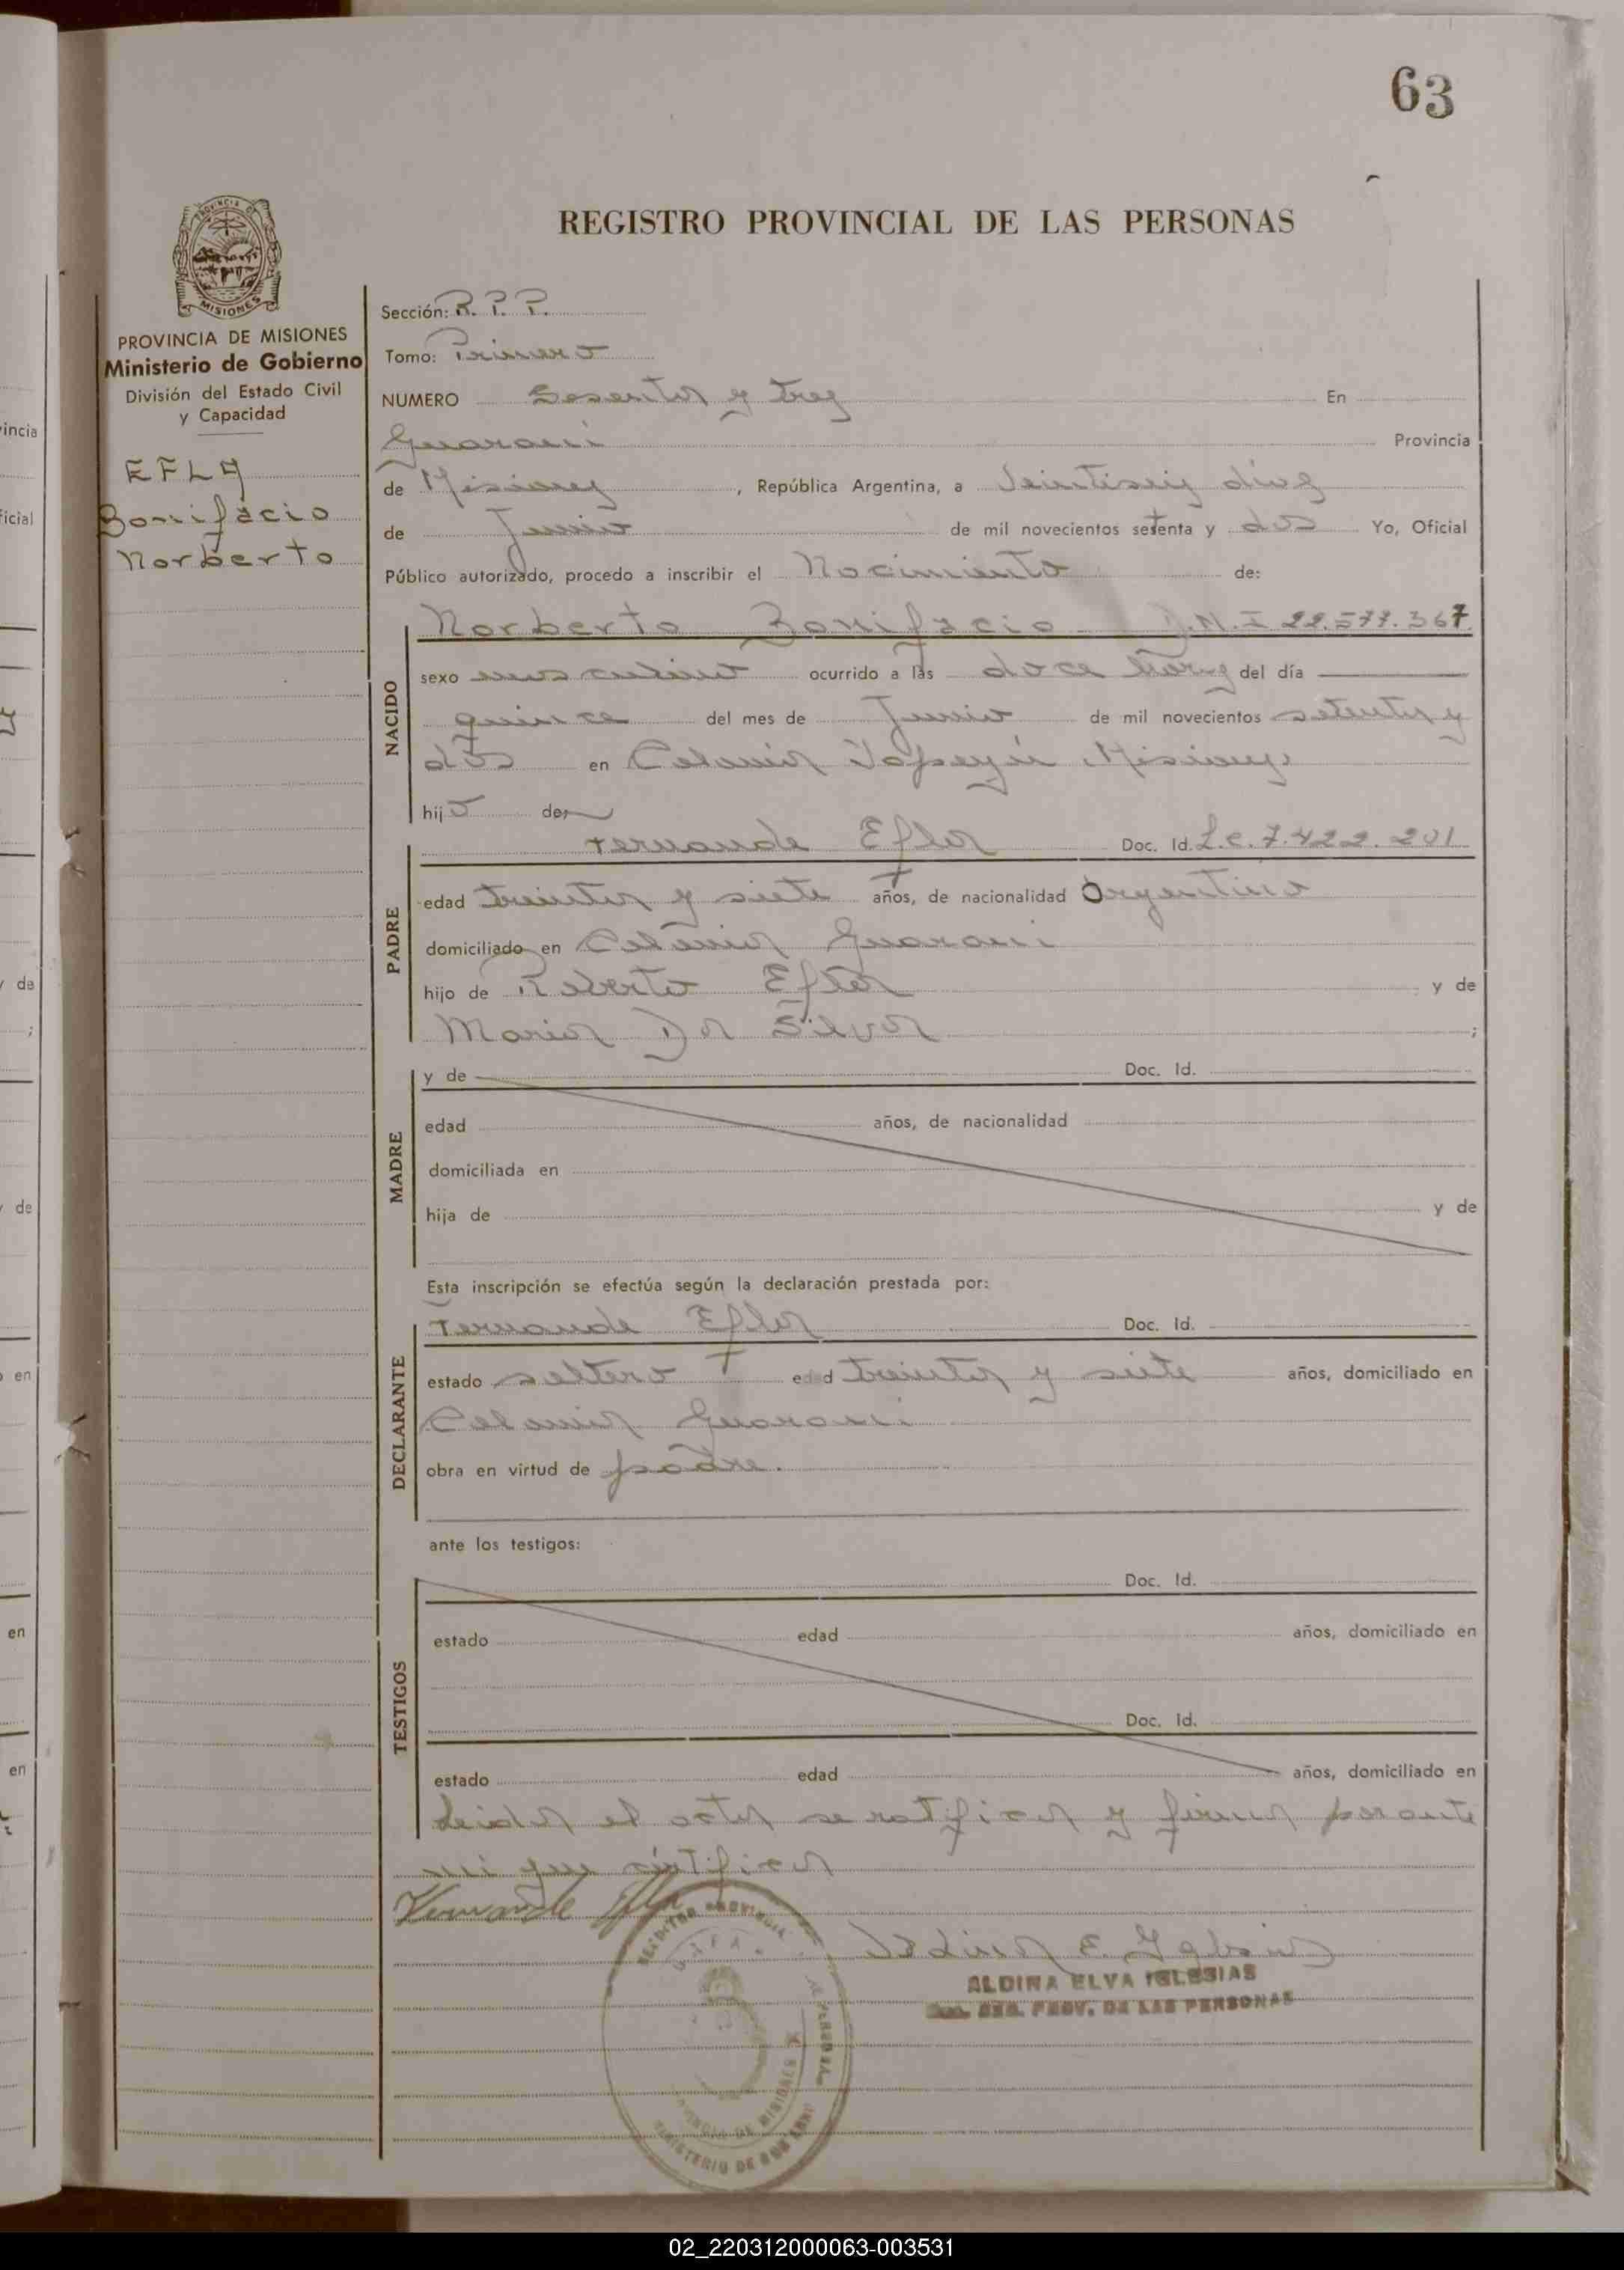 63
REGISTRO PROVINCIAL DE LAS PERSONAS
PROVINCIA DE
MISIONES
PROVINCIA DE MISIONES
Ministerio de Gobierno
División del Estado Civil
y Capacidad
EFLA
Bonifacio
Norberto
Sección: R. P. P.
Tomo: Primero
NUMERO Sesenta y tres En
Guarani Provincia
de Misiones, República Argentina, a Veintiseis dias
de Junio de mil novecientos setenta y dos Yo, Oficial
Público autorizado, procedo a inscribir el Nacimiento de:
Norberto Bonifacio D.N.I 22.577.367.
NACIDO
sexo masculino ocurrido a las doce horas del día
quince del mes de Junio de mil novecientos setenta y
dos en Colonia Yapeyú Misiones
hijo de
PADRE
Fernande Efla Doc. Id. L.E. 7.422.201
edad treinta y siete años, de nacionalidad Argentino
domiciliado en Colonia Guarani
hijo de Roberto Efla y de
Maria Da Silva ;
MADRE
y de Doc. Id.
edad años, de nacionalidad
domiciliada en
hija de y de
Esta inscripción se efectúa según la declaración prestada por:
DECLARANTE
Fernande Efla Doc. Id.
estado soltero edad treinta y siete años, domiciliado en
Colonia Guarani
obra en virtud de padre.
ante los testigos:
TESTIGOS
Doc. Id.
estado edad años, domiciliado en
Doc. Id.
estado edad años, domiciliado en
Leida el acta se ratifica y firma por ante
mi que certifico
Fernande Efla
Aldina E. Iglesias
ALDINA ELVA IGLESIAS
REG. PROV. DE LAS PERSONAS
MINISTERIO DE GOBIERNO
PROVINCIA DE MISIONES
02_220312000063-003531